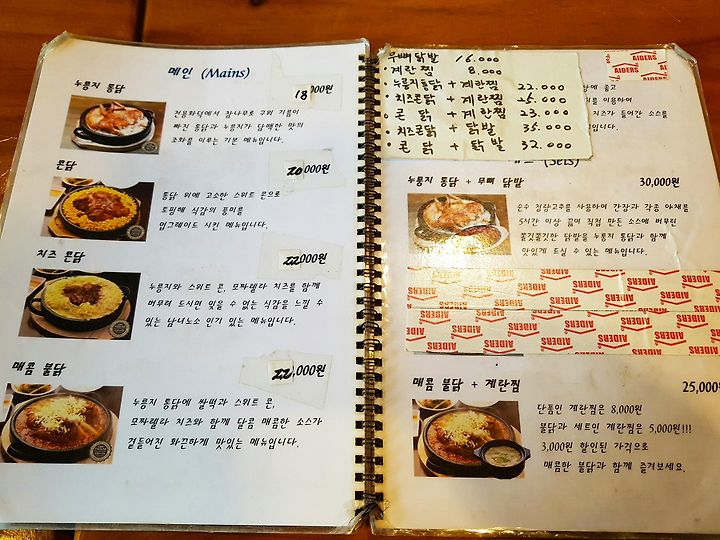 메인 (Mains)
누룽지 통닭
18,000원
전용화덕에서 참나무로 구워 기름이
빠진 통닭과 누룽지가 담백한 맛의
조화를 이루는 기본 메뉴입니다.
콘닭
20,000원
통닭 위에 고소한 스위트 콘으로
토핑해 식감의 풍미를
업그레이드 시킨 메뉴입니다.
치즈 콘닭
22,000원
누룽지와 스위트 콘, 모짜렐라 치즈를 함께
버무려 드시면 잊을 수 없는 식감을 느낄 수
있는 남녀노소 인기 있는 메뉴입니다.
매콤 불닭
22,000원
누룽지 통닭에 쌀떡과 스위트 콘,
모짜렐라 치즈와 함께 달콤 매콤한 소스가
곁들어진 화끈하게 맛있는 메뉴입니다.
무뼈닭발 16.000
·계란찜 8.000
·누룽지통닭 + 계란찜 22.000
·치즈콘닭 + 계란찜 25.000
·콘 닭 + 계란찜 23.000
·치즈콘닭 + 닭발 35.000
·콘 닭 + 닭발 32.000
AIDERS
이용하여
들어간 소스를
입니다.
(Sets)
누룽지 통닭 + 무뼈 닭발
30,000원
순수 청양고추를 사용하여 간장과 각종 야채를
5시간 이상 끓여 직접 만든 소스에 버무린
쫄깃쫄깃한 닭발을 누룽지 통닭과 함께
맛있게 드실 수 있는 메뉴입니다.
AIDERS AIDERS AIDERS AIDERS
매콤 불닭 + 계란찜
25,000원
단품인 계란찜은 8,000원
불닭과 세트인 계란찜은 5,000원!!!
3,000원 할인된 가격으로
매콤한 불닭과 함께 즐겨보세요.